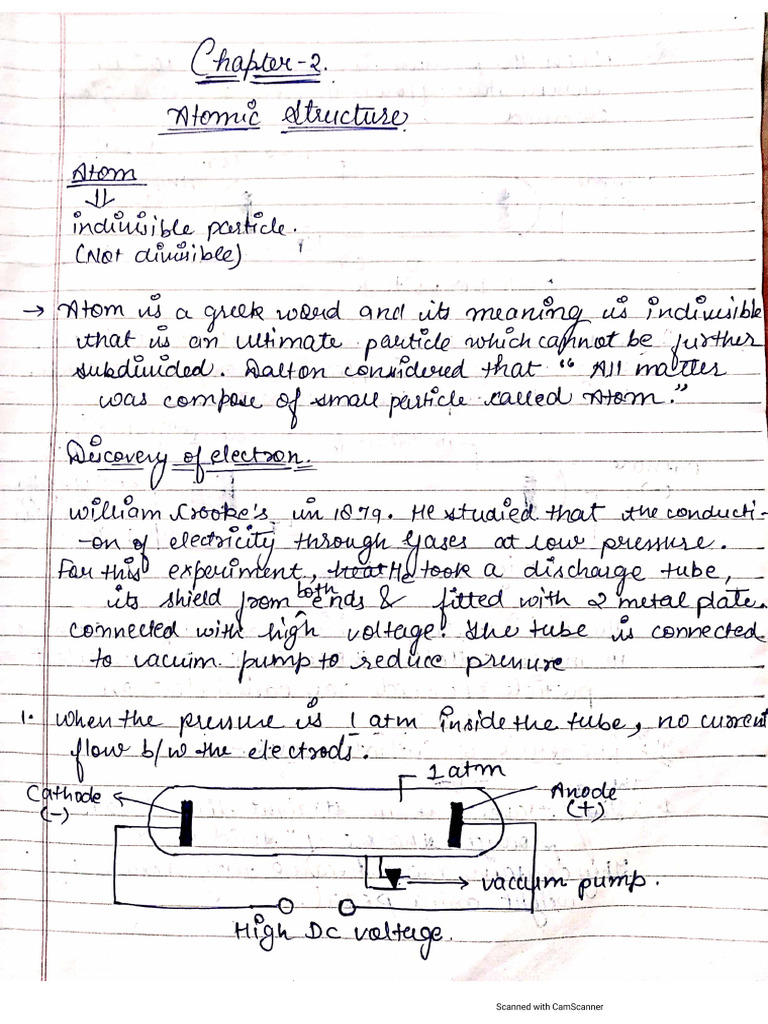 Chapter-2.
Atomic Structure
Atom
⇓
indivisible particle.
(Not divisible)
→ Atom is a greek word and its meaning is indivisible
that is an ultimate particle which cannot be further
subdivided. Dalton considered that “All matter
was compose of small particle called Atom.”
Discovery of electron.
William Crooke's in 1879. He studied that the conducti-
-on of electricity through Gases at low pressure.
For this experiment, He took a discharge tube,
its shield from both ends & fitted with 2 metal plate.
connected with high voltage. The tube is connected
to vaccum pump to reduce pressure
1. when the pressure is 1 atm inside the tube, no current
flow b/w the electrods.
1 atm
Cathode
(-)
Anode
(+)
vaccum pump.
High DC voltage.
Scanned with CamScanner